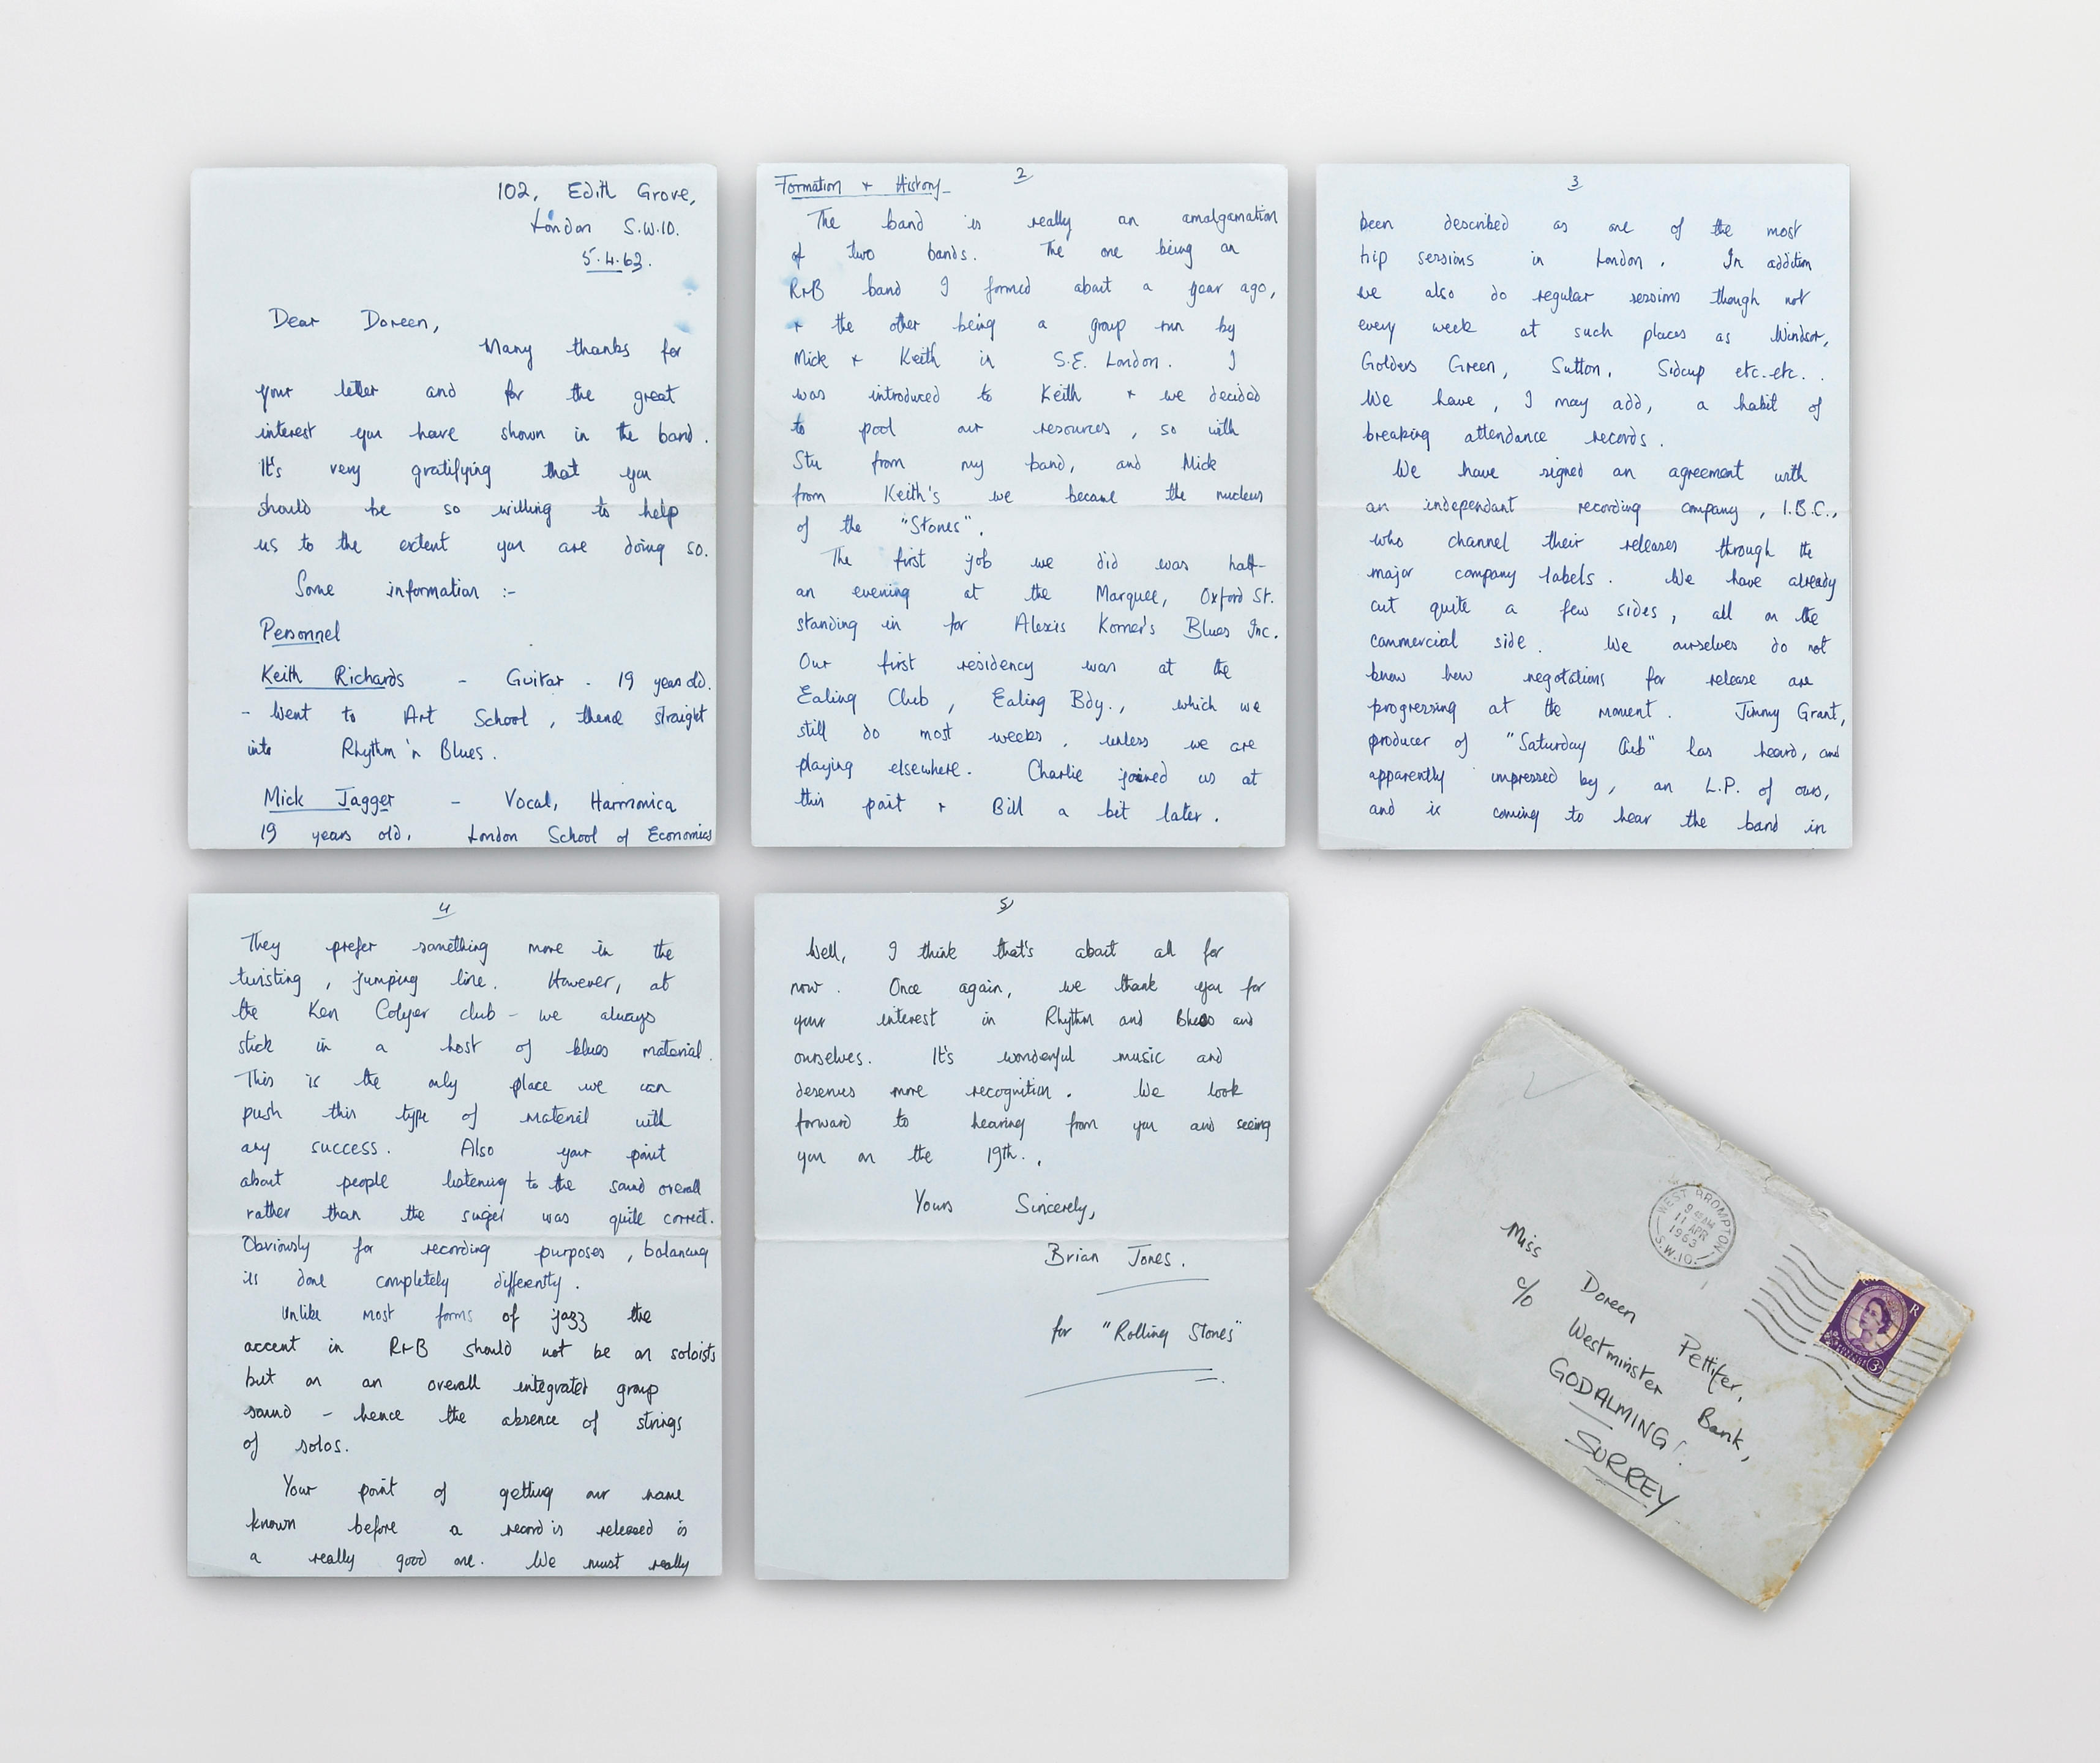 102, Edith Grove,
London S.W.10.
5.4.63.
Dear Doreen,
Many thanks for
your letter and for the great
interest you have shown in the band.
It's very gratifying that you
should be so willing to help
us to the extent you are doing so.
Some information :-
Personnel
Keith Richards - Guitar - 19 years old.
- Went to Art School, thence straight
into Rhythm 'n Blues.
Mick Jagger - Vocal, Harmonica
19 years old. London School of Economics
2
Formation + History
The band is really an amalgamation
of two bands. The one being an
R+B band I formed about a year ago,
+ the other being a group run by
Mick + Keith in S.E. London. I
was introduced to Keith + we decided
to pool our resources, so with
Stu from my band, and Mick
from Keith's we became the nucleus
of the "Stones".
The first job we did was half-
an evening at the Marquee, Oxford St.
standing in for Alexis Korner's Blues Inc.
Our first residency was at the
Ealing Club, Ealing Bdy., which we
still do most weeks, unless we are
playing elsewhere. Charlie joined us at
this point + Bill a bit later.
3
been described as one of the most
hip sessions in London. In addition
we also do regular sessions though not
every week at such places as Windsor,
Golders Green, Sutton, Sidcup etc. etc..
We have, I may add, a habit of
breaking attendance records.
We have signed an agreement with
an independant recording company, I.B.C.,
who channel their releases through the
major company labels. We have already
cut quite a few sides, all on the
commercial side. We ourselves do not
know how negotations for release are
progressing at the moment. Jimmy Grant,
producer of "Saturday Club" has heard, and
apparently impressed by, an L.P. of ours,
and is coming to hear the band in
4
They prefer something more in the
twisting, jumping line. However, at
the Ken Colyer club - we always
stick in a host of blues material.
This is the only place we can
push this type of material with
any success. Also your point
about people listening to the sound overall
rather than the singer was quite correct.
Obviously for recording purposes, balancing
is done completely differently.
Unlike most forms of jazz the
accent in R+B should not be on soloists
but on an overall integrated group
sound - hence the absence of strings
of solos.
Your point of getting our name
known before a record is released is
a really good one. We must really
5
Well, I think that's about all for
now. Once again, we thank you for
your interest in Rhythm and Blues and
ourselves. It's wonderful music and
deserves more recognition. We look
forward to hearing from you and seeing
you on the 19th..
Yours Sincerely,
Brian Jones.
for "Rolling Stones"
WEST BROMPTON
9 AM
11 APR
1963
S.W.10.
Miss Doreen Pettifer,
c/o Westminster Bank,
GODALMING!
SURREY